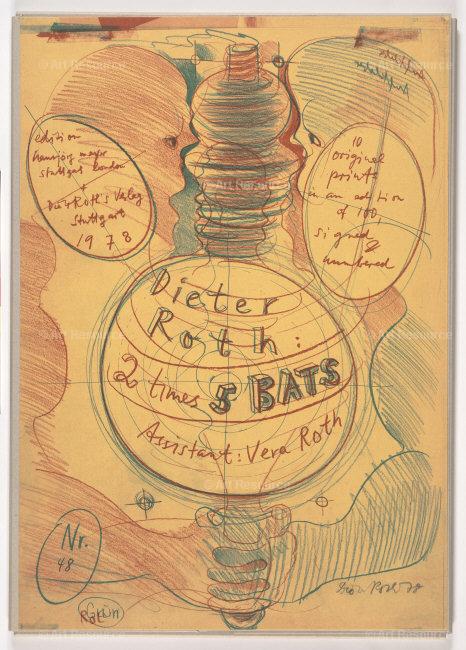 edition
hansjörg mayer
stuttgart london
+
Dieter Roth's Verlag
Stuttgart
1978
10
original
prints
in an edition
of 100,
signed
&
numbered
Dieter
Roth:
2 times 5 BATS
Assistant: Vera Roth
Nr.
48
Art Resource